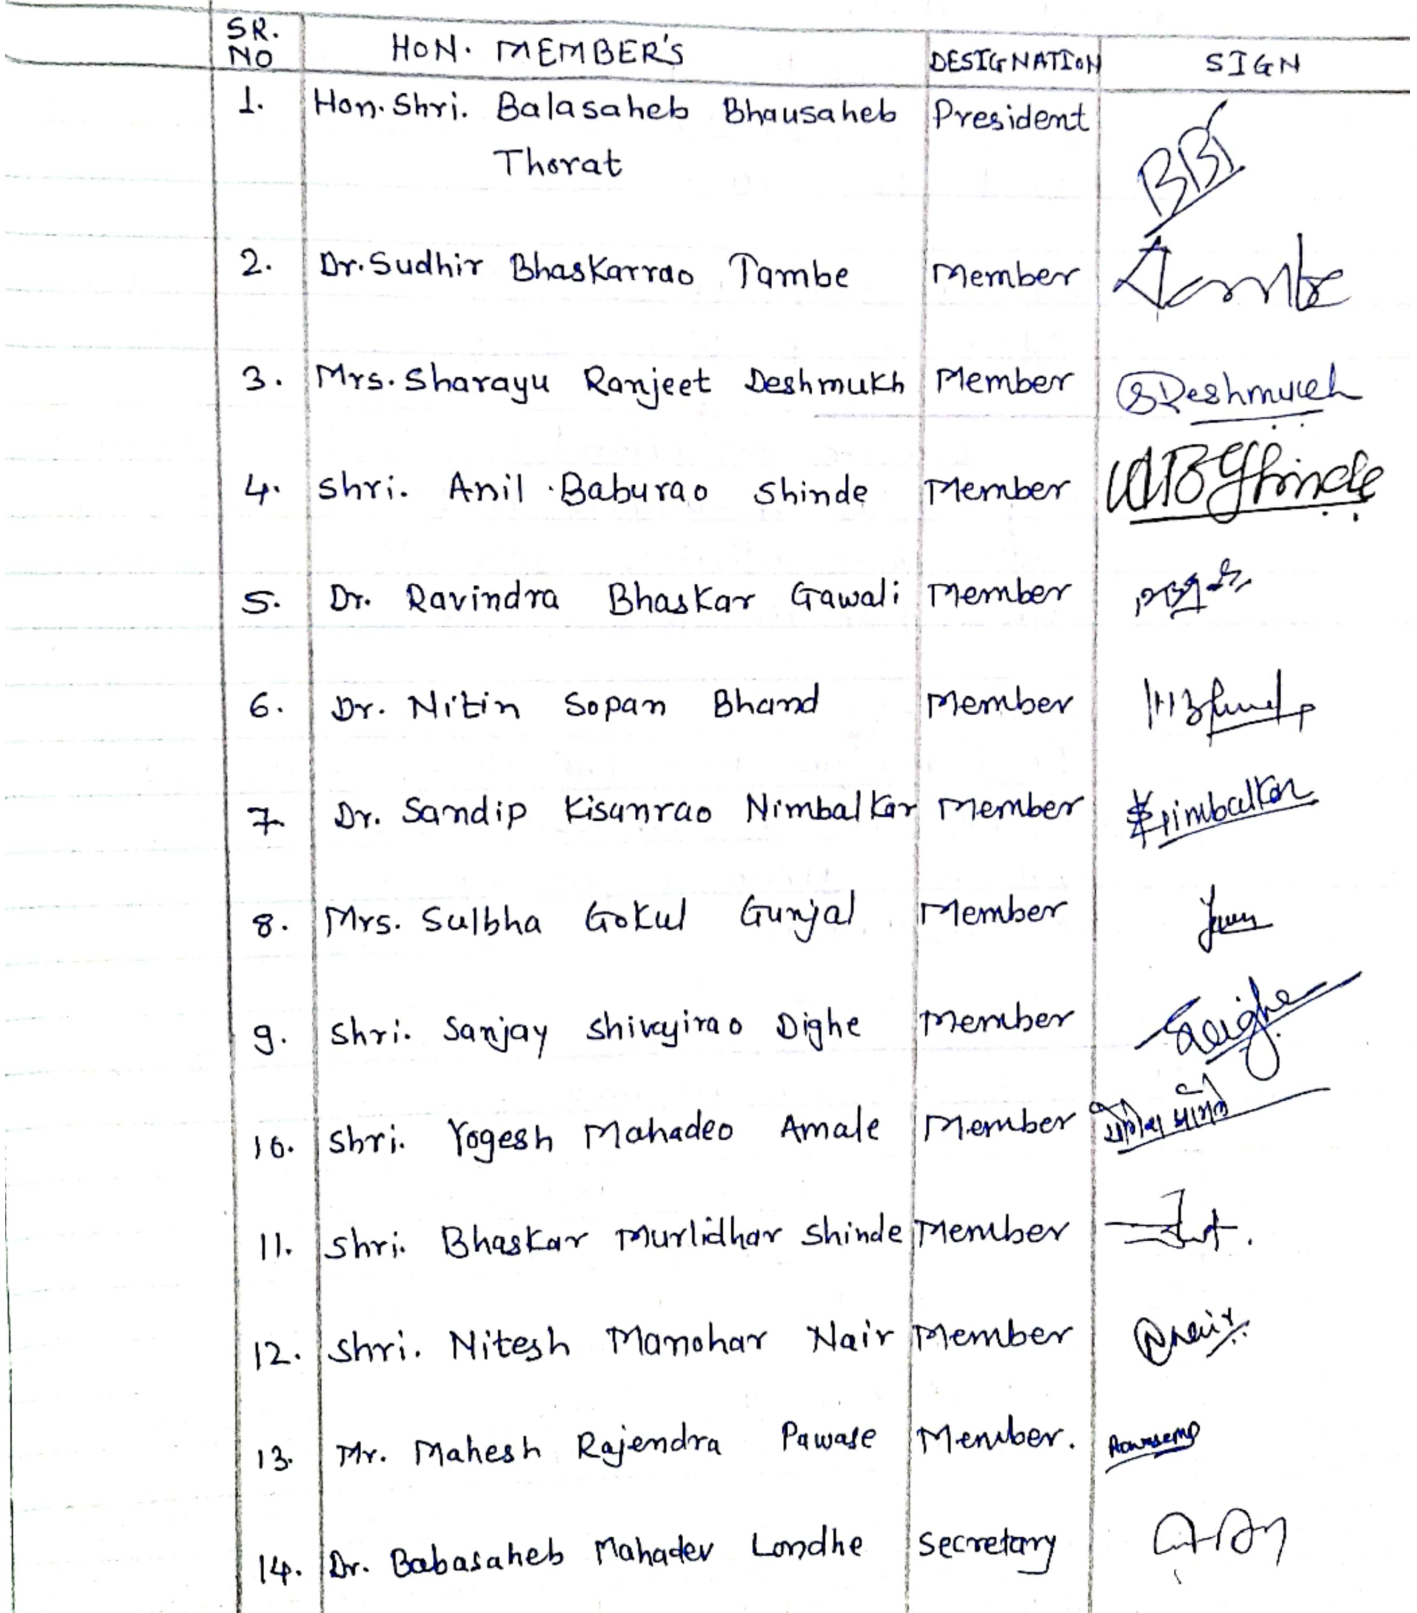 SR. NO HON. MEMBER'S DESIGNATION SIGN
1. Hon. Shri. Balasaheb Bhausaheb President BBT
Thorat
2. Dr. Sudhir Bhaskarrao Tambe Member Tambe
3. Mrs. Sharayu Ranjeet Deshmukh Member SDeshmukh
4. Shri. Anil Baburao Shinde Member ABShinde
5. Dr. Ravindra Bhaskar Gawali Member
6. Dr. Nitin Sopan Bhand Member
7. Dr. Sandip Kisanrao Nimbalkar Member Nimbalkar
8. Mrs. Sulbha Gokul Gunjal Member
9. Shri. Sanjay Shivajirao Dighe Member
10. Shri. Yogesh Mahadeo Amale Member
11. Shri. Bhaskar Murlidhar Shinde Member
12. Shri. Nitesh Manohar Nair Member
13. Mr. Mahesh Rajendra Pawase Member.
14. Dr. Babasaheb Mahadev Londhe Secretary